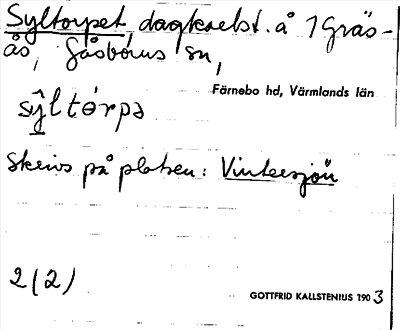 Syltorpet, dagkarlst. å 1 Gräs-
ås, Gåsborns sn,
Färnebo hd, Värmlands län
sŷltórpə
Skrivs på platsen: Vintersjön
2(2)
GOTTFRID KALLSTENIUS 1903